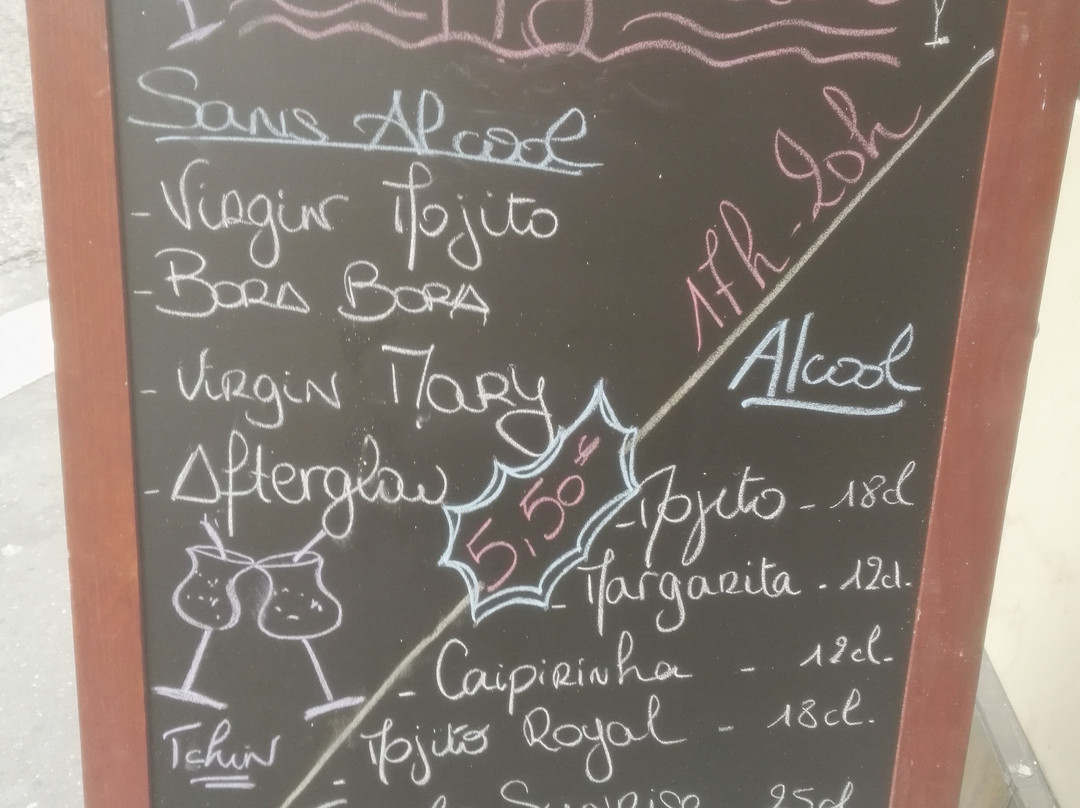 Sans Alcool
- Virgin Mojito
- Bora Bora
- Virgin Mary
- Afterglow
Tchin
17h - 20h
5,50€
Alcool
- Mojito - 18cl
- Margarita - 12cl.
- Caipirinha - 12cl.
- Mojito Royal - 18cl.
Sunrise 25cl